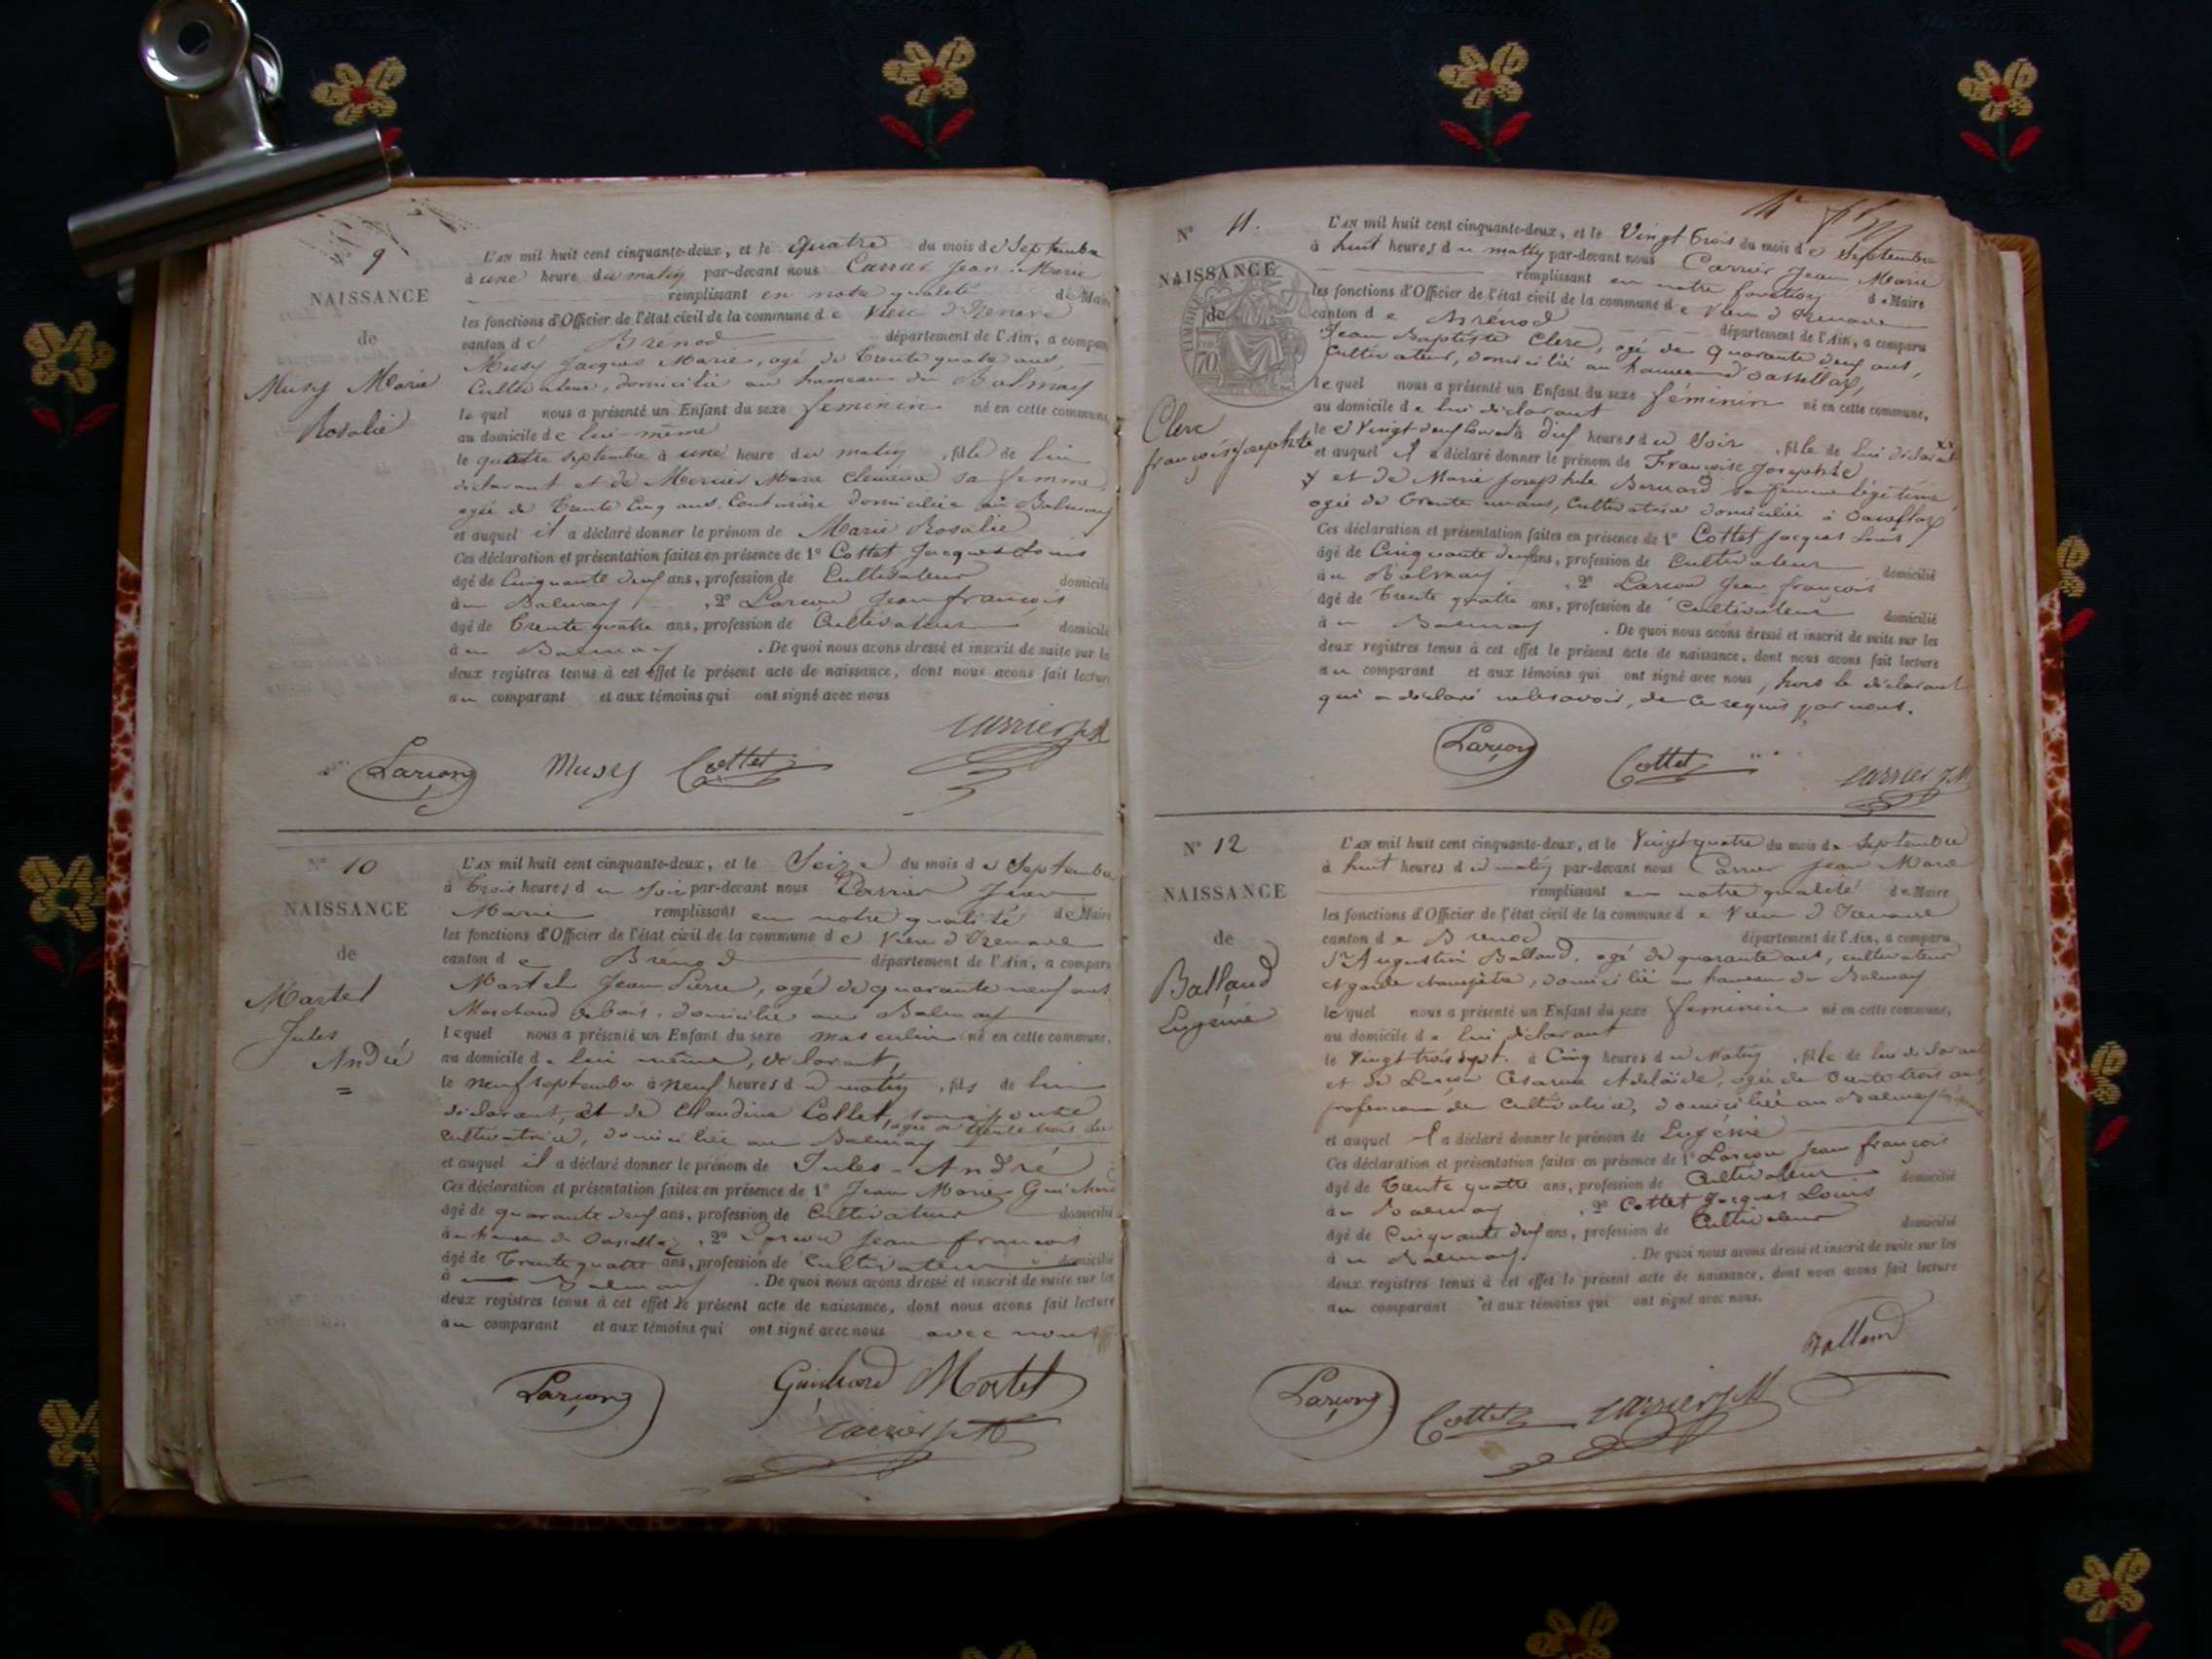 9
NAISSANCE
de
Musy Marie
Rosalie
L'AN mil huit cent cinquante-deux, et le quatre du mois de Septembre
à une heure du matin par-devant nous Carrier Jean Marie
remplissant en notre qualité de Maire
les fonctions d'Officier de l'état civil de la commune de Vieu d'Izenave
canton de Brénod département de l'Ain, a comparu
Musy Jacques Marie, agé de trente quatre ans,
Cultivateur, domicilié au hameau du Balmay
lequel nous a présenté un Enfant du sexe féminin né en cette commune,
au domicile de lui-même
le quatre septembre à une heure du matin, fille de lui
déclarant et de Mercier Marie Clémence sa femme,
agée de trente cinq ans, Couturière domiciliée au Balmay
et auquel il a déclaré donner le prénom de Marie Rosalie
Ces déclaration et présentation faites en présence de 1° Cottet Jacques Louis
âgé de Cinquante deux ans, profession de Cultivateur domicilié
au Balmay, 2° Larçon Jean françois
âgé de trente quatre ans, profession de Cultivateur domicilié
au Balmay. De quoi nous avons dressé et inscrit de suite sur les
deux registres tenus à cet effet le présent acte de naissance, dont nous avons fait lecture
au comparant et aux témoins qui ont signé avec nous
Carrier JM
Larçon Musy Cottet
N° 10
NAISSANCE
de
Martel
Jules
André
L'AN mil huit cent cinquante-deux, et le Seize du mois de Septembre
à trois heures du soir par-devant nous Carrier Jean
Marie remplissant en notre qualité de Maire
les fonctions d'Officier de l'état civil de la commune de Vieu d'Izenave
canton de Brénod département de l'Ain, a comparu
Martel Jean Pierre, agé de quarante neuf ans
Marchand de bois, domicilié au Balmay
lequel nous a présenté un Enfant du sexe masculin né en cette commune,
au domicile de lui même, déclarant,
le neuf septembre à neuf heures du matin, fils de lui
déclarant, et de Claudine Collet, son épouse
agée de trente trois ans
cultivatrice, domiciliée au Balmay
et auquel il a déclaré donner le prénom de Jules-André
Ces déclaration et présentation faites en présence de 1° Jean Marie Guichard
âgé de quarante deux ans, profession de Cultivateur domicilié
au hameau de, 2° Larçon Jean françois
âgé de trente quatre ans, profession de Cultivateur domicilié
à Balmay. De quoi nous avons dressé et inscrit de suite sur les
deux registres tenus à cet effet le présent acte de naissance, dont nous avons fait lecture
au comparant et aux témoins qui ont signé avec nous avec nous
Larçon Guichard Martel
Carrier JM
N° 11.
NAISSANCE
de
TIMBRE
70
Clerc
françoise Josephte
L'AN mil huit cent cinquante-deux, et le Vingt trois du mois de Septembre
à huit heures du matin par-devant nous Carrier Jean Marie
remplissant en notre fonction de Maire
les fonctions d'Officier de l'état civil de la commune de Vieu d'Izenave
canton de Brénod département de l'Ain, a comparu
Jean Baptiste Clerc, agé de quarante deux ans,
Cultivateur, domicilié au hameau
lequel nous a présenté un Enfant du sexe féminin né en cette commune,
au domicile de lui déclarant
le Vingt deux à dix heures du soir, fille de lui déclarant
et auquel il a déclaré donner le prénom de Françoise Josephte
et de Marie Josephte Bernard sa femme légitime
agée de trente un ans, Cultivatrice domiciliée à
Ces déclaration et présentation faites en présence de 1° Cottet Jacques Louis
âgé de Cinquante deux ans, profession de Cultivateur domicilié
au Balmay, 2° Larçon Jean françois
âgé de trente quatre ans, profession de Cultivateur domicilié
au Balmay. De quoi nous avons dressé et inscrit de suite sur les
deux registres tenus à cet effet le présent acte de naissance, dont nous avons fait lecture
au comparant et aux témoins qui ont signé avec nous, hors le déclarant
qui a déclaré ne le savoir, de ce requis par nous.
Larçon Cottet Carrier JM
N° 12
NAISSANCE
de
Balland
Eugénie
L'AN mil huit cent cinquante-deux, et le Vingt quatre du mois de Septembre
à huit heures du matin par-devant nous Carrier Jean Marie
remplissant en notre qualité de Maire
les fonctions d'Officier de l'état civil de la commune de Vieu d'Izenave
canton de Brenod département de l'Ain, a comparu
Sr Augustin Balland, agé de quarante ans, cultivateur
et garde champêtre, domicilié au hameau du Balmay
lequel nous a présenté un Enfant du sexe féminin né en cette commune,
au domicile de lui déclarant
le Vingt trois sept. à Cinq heures du Matin, fille de lui déclarant
et de Larçon Césarine Adelaïde, agée de trente trois ans,
profession de cultivatrice, domiciliée au Balmay
et auquel il a déclaré donner le prénom de Eugénie
Ces déclaration et présentation faites en présence de 1° Larçon Jean françois
âgé de trente quatre ans, profession de Cultivateur domicilié
au Balmay, 2° Cottet Jacques Louis
âgé de Cinquante deux ans, profession de Cultivateur domicilié
au Balmay. De quoi nous avons dressé et inscrit de suite sur les
deux registres tenus à cet effet le présent acte de naissance, dont nous avons fait lecture
au comparant et aux témoins qui ont signé avec nous.
Balland
Larçon Cottet Carrier JM